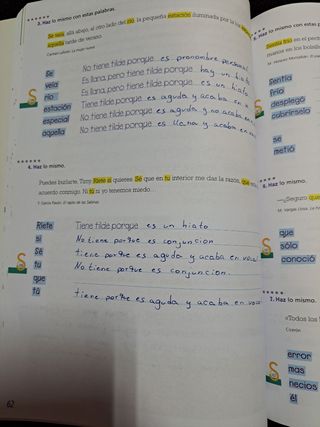 3. Haz lo mismo con estas palabras.
Se veía, allá abajo, al otro lado del río, la pequeña estación iluminada por la
aquella tarde de verano.
Se No tiene tilde porque es pronombre personal
veía Es llana, pero tiene tilde porque hay un hiato
río Es llana, pero tiene tilde porque es un hiato
estación Tiene tilde porque es aguda y acaba en n
especial No tiene tilde porque es aguda y no acaba en
aquella No tiene tilde porque es llana y acaba en
4. Haz lo mismo.
Puedes burlarte, Tany. Ríete si quieres. Sé que en tu interior me das la razón, que
acuerdo conmigo. Ni tú ni yo tenemos miedo...
Ríete Tiene tilde porque es un hiato
si No tiene porque es conjuncion
Sé tiene porque es aguda y acaba en vocal
tu No tiene porque es conjuncion.
que
tú tiene porque es aguda y acaba en vocal
62
5. Haz lo mismo con estas
Sentía frío en el
manos en los bolsill
Sentía
frío
desplegó
cubrírselo
se
metió
6. Haz lo mismo.
—¿Seguro que
que
sólo
conoció
7. Haz lo mismo.
«Todos los
error
mas
necios
él